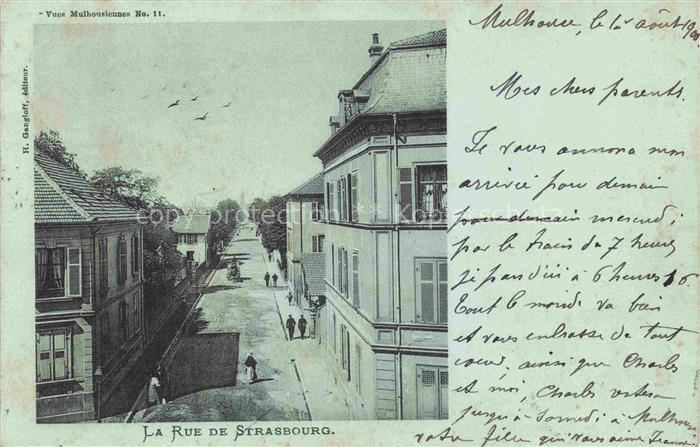 Vues Mulhousiennes No. 11.
H. Gangloff, éditeur.
LA RUE DE STRASBOURG.
Mulhouse, le 12 août 190
Mes chers parents.
Je vous annonce mon
arrivée pour demain
pour demain mercredi
par le train de 7 heures
je pars d'ici à 6 heures 16
Tout le monde va bien
et vous embrasse de tout
cœur, ainsi que Charles
et moi, Charles restera
jusqu'à Samedi à Mulhouse
votre fille qui vous aime